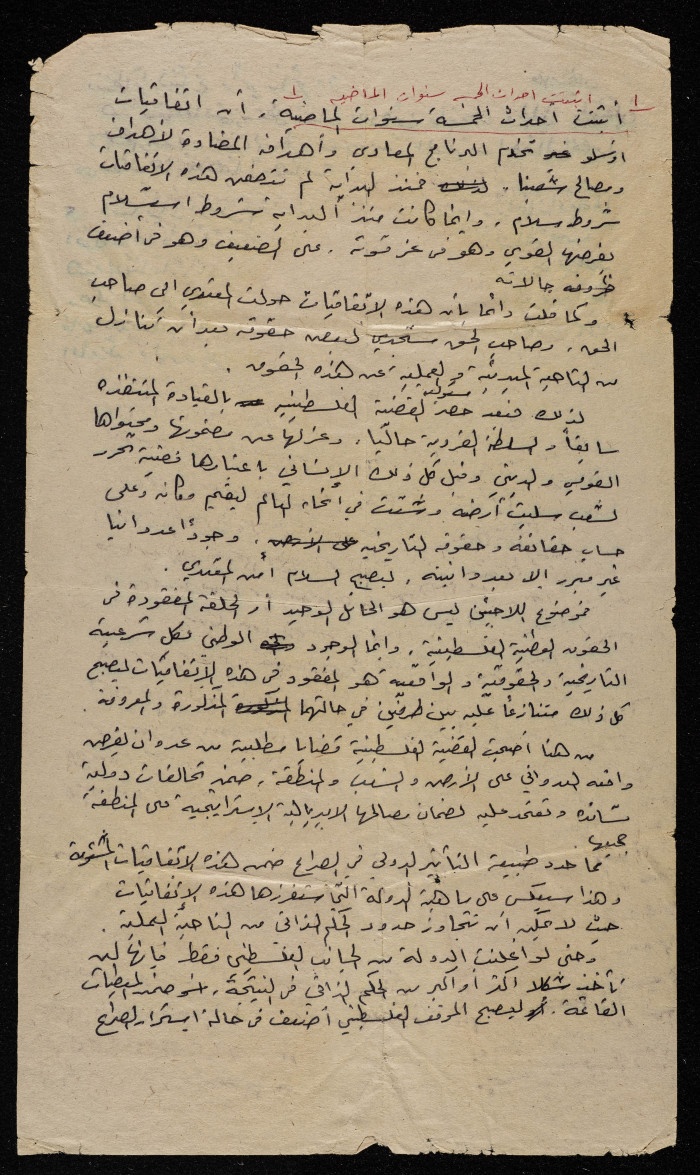 ١ اثبتت احداث الخمسة سنوات الماضيه ١
أثبتت احداث الخمسة سنوات الماضية، أن اتفاقيات
اوسلو تخدم البرنامج المعادي وأهدافه المضادة لأهداف
ومصالح شعبنا. فمنذ البداية لم تتضمن هذه الاتفاقات
شروط سلام، وانما كانت منذ البداية شروط استسلام
يفرضها القوي وهو في عز قوته. على الضعيف وهو في أضعف
ظروفه وحالاته
وكما قلت دائما بأن هذه الاتفاقيات حولت المعتدي الى صاحب
الحق، وصاحب الحق مستجدي لبعض حقوقه بعد أن تنازل
من الناحية المبدئية والعملية عن هذه الحقوق.
لذلك فبعد حصر مسؤولية القضية الفلسطينية بالقيادة المتنفذه
سابقاً والسلطة الفردية حالياً، وعزلها عن مضمونها ومحتواها
القومي والديني وقبل كل ذلك الإنساني باعتبارها قضية تحرر
لشعب سلبت أرضه وشتت في أنحاء العالم ليقيم مكانه وعلى
حساب حقائقه وحقوقه التاريخيه على الأرض، وجوداً عدوانيا
غير مبرر إلا بعدوانيته، ليصبح السلام أمن المعتدي.
فموضوع اللاجئين ليس هو الحائل الوحيد أو الحلقة المفقودة في
الحقوق الوطنية الفلسطينية، وانما الوجود الوطني بكل شرعيته
التاريخية والحقوقية والواقعية هو المفقود في هذه الإتفاقيات ليصبح
كل ذلك متنازعاً عليه بين طرفين في حالتهما المذكورة والمعروفة.
من هنا أصبحت القضية الفلسطينية قضايا مطلبية من عدوان يفرض
واقعه العدواني على الأرض والشعب والمنطقة، ضمن تحالفات دولية
تسانده وتعتمد عليه لضمان مصالحها الامبريالية الاستراتيجية على المنطقة
جميعها.
مما حدد طبيعة التأثير الدولي في الصراع ضمن هذه الاتفاقيات المشؤومة
وهذا سينعكس على ماهية الدولة التي ستفرزها هذه الاتفاقيات
حيث لا يمكن أن تتجاوز حدود الحكم الذاتي من الناحية العملية.
وحتى لو اعلنت الدولة من الجانب الفلسطيني فقط فإنها لن
تأخذ شكلا اكثر أو اكبر من الحكم الذاتي في النتيجة، ضمن المعطيات
القائمة. ليصبح الموقف الفلسطيني أضعف في حالة استمرار الصراع